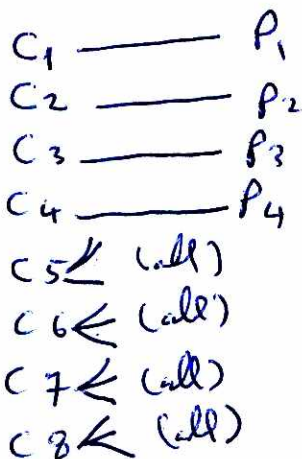 C1 P1
C2 P2
C3 P3
C4 P4
C5 (all)
C6 (all)
C7 (all)
C8 (all)